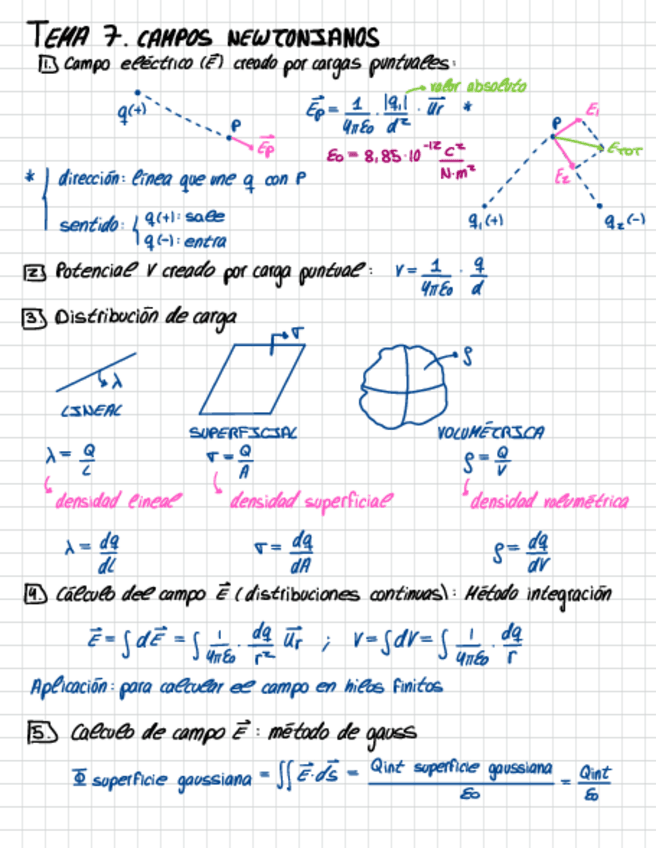 TEMA 7. CAMPOS NEWTONIANOS
1. Campo eléctrico (E⃗) creado por cargas puntuales:
valor absoluto
q(+) P E⃗p
E⃗p = 1/4πε₀ · |q₁|/d² · u⃗r *
ε₀ = 8,85·10⁻¹² C²/N·m²
P E₁ E₂ E_TOT q₁(+) q₂(-)
* dirección: línea que une q con P
sentido: q(+): sale
q(-): entra
2. Potencial V creado por carga puntual: V = 1/4πε₀ · q/d
3. Distribución de carga
λ σ ρ
LINEAL SUPERFICIAL VOLUMÉTRICA
λ = Q/L σ = Q/A ρ = Q/V
densidad lineal densidad superficial densidad volumétrica
λ = dq/dL σ = dq/dA ρ = dq/dV
4. Cálculo del campo E⃗ (distribuciones continuas): Método integración
E⃗ = ∫dE⃗ = ∫ 1/4πε₀ · dq/r² u⃗r ; V = ∫dV = ∫ 1/4πε₀ · dq/r
Aplicación: para calcular el campo en hilos finitos
5. Calculo de campo E⃗: método de gauss
Φ superficie gaussiana = ∬ E⃗·ds⃗ = Qint superficie gaussiana/ε₀ = Qint/ε₀